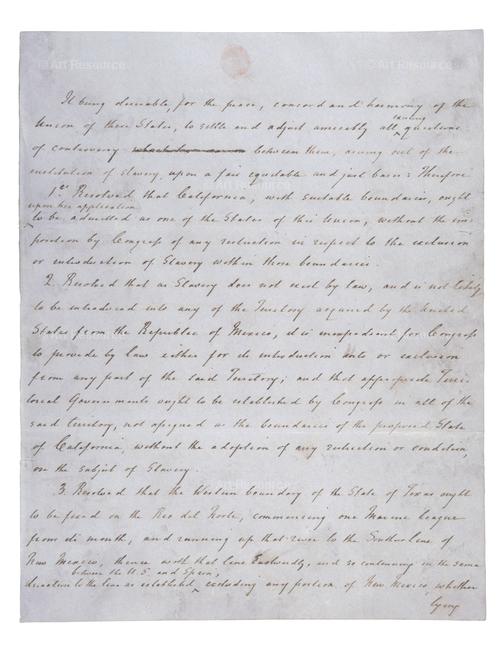 It being desirable, for the peace, concord and harmony of the
Union of these States, to settle and adjust amicably all existing questions
of controversy between them, arising out of the
institution of slavery, upon a fair equitable and just basis: Therefore
1st Resolved that California, with suitable boundaries, ought
upon her application
to be admitted as one of the States of this Union, without the im
position by Congress of any restriction in respect to the exclusion
or introduction of Slavery within those boundaries.
2. Resolved that as Slavery does not exist by law, and is not likely
to be introduced into any of the Territory acquired by the United
States from the Republic of Mexico, it is inexpedient for Congress
to provide by law either for its introduction into or exclusion
from any part of the said Territory; and that appropriate Terri
torial Governments ought to be established by Congress in all of the
said territory, not assigned as the boundaries of the proposed State
of California, without the adoption of any restriction or condition
on the subject of Slavery.
3. Resolved that the Western boundary of the State of Texas ought
to be fixed on the Rio del Norte, commencing one Marine league
from its mouth, and running up that river to the Southern line of
New Mexico, thence with that line Eastwardly, and so continuing in the same
between the U.S. and Spain,
direction to the line as established, excluding any portion of New Mexico, whether
lying
© Art Resource